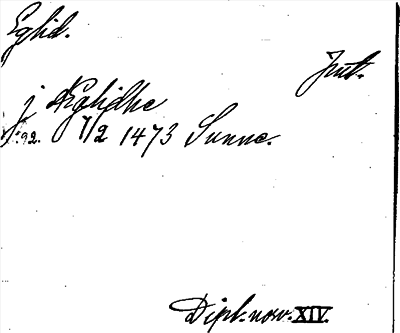 Eghd.
Jmt.
j Æghdhe
s. 92. 7/2 1473 Sunne.
Dipl. nov. XIV.